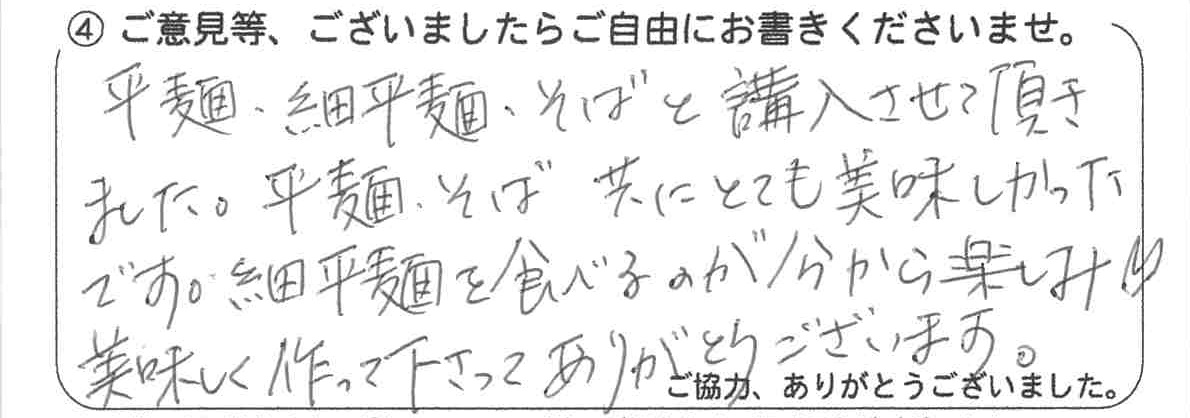 ④ ご意見等、ございましたらご自由にお書きくださいませ。
平麺、細平麺、そばと講入させて頂き
ました。平麺、そば 共にとても美味しかった
です。細平麺を食べるのが今から楽しみ!!
美味しく作って下さってありがとうございます。
ご協力、ありがとうございました。